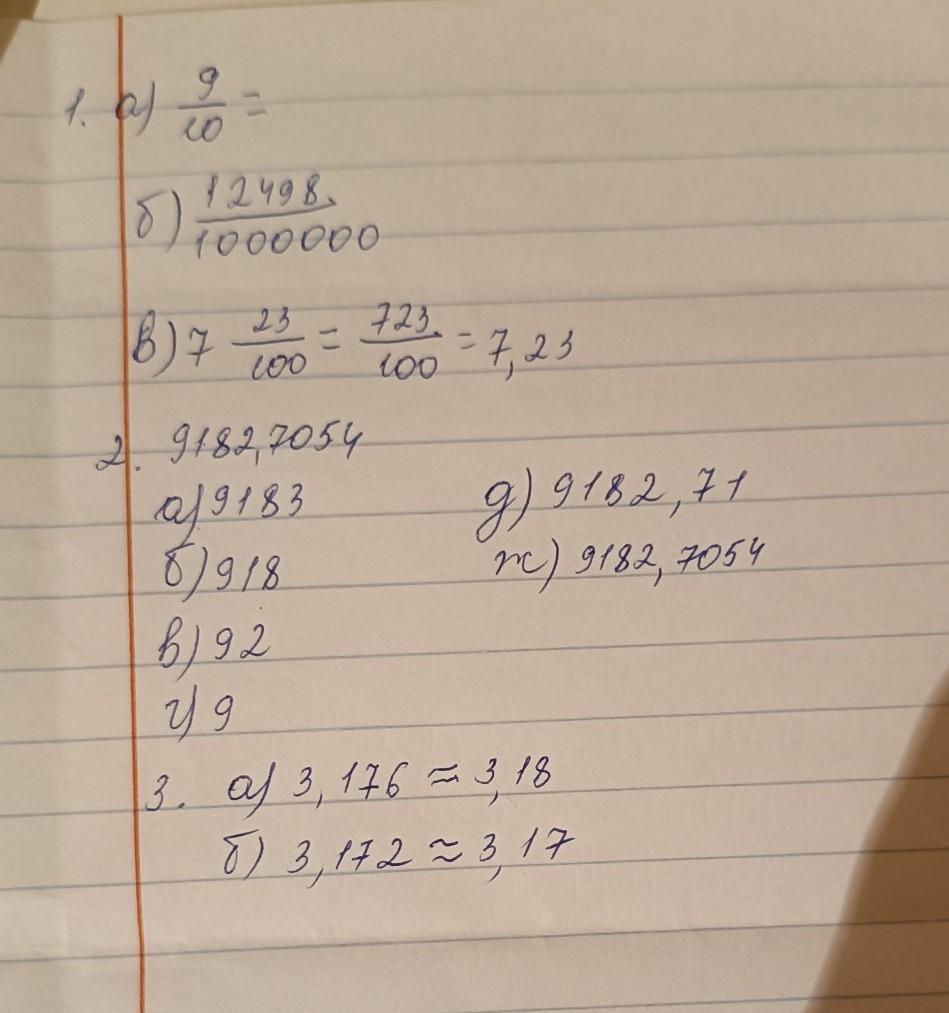 1. а) 9/10 =
б) 12498/1000000
в) 7 23/100 = 723/100 = 7,23
2. 9182,7054
а) 9183 д) 9182,71
б) 918 ж) 9182,7054
в) 92
г) 9
3. а) 3,176 ≈ 3,18
б) 3,172 ≈ 3,17